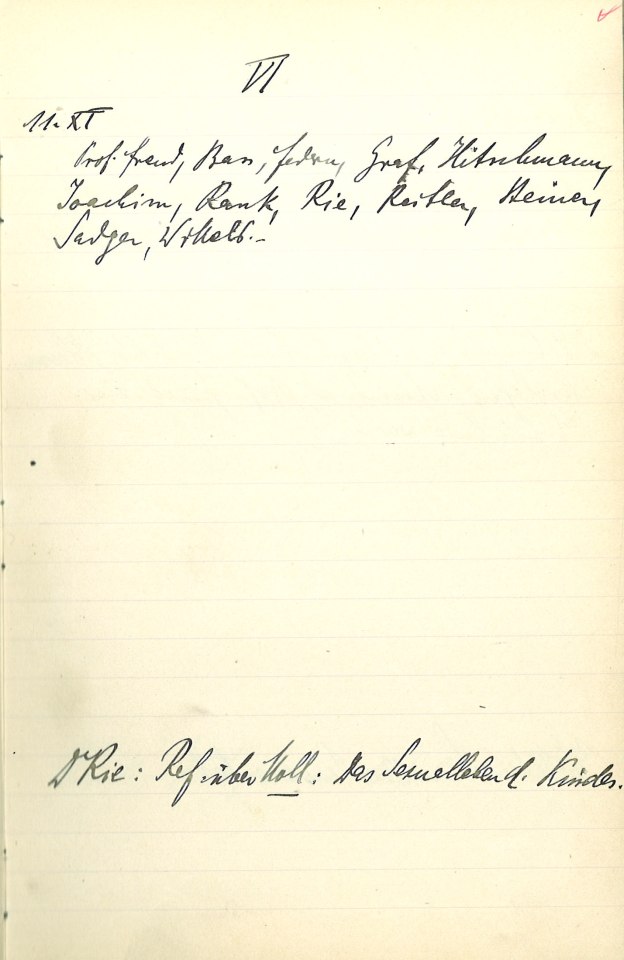 VI
11. XI
Prof. Freud, Bass, Federn, Graf, Hitschmann,
Joachim, Rank, Rie, Reitler, Steiner,
Sadger, Wittels.–
Dr Rie: Ref. über Moll: Das Sexualleben d. Kindes.